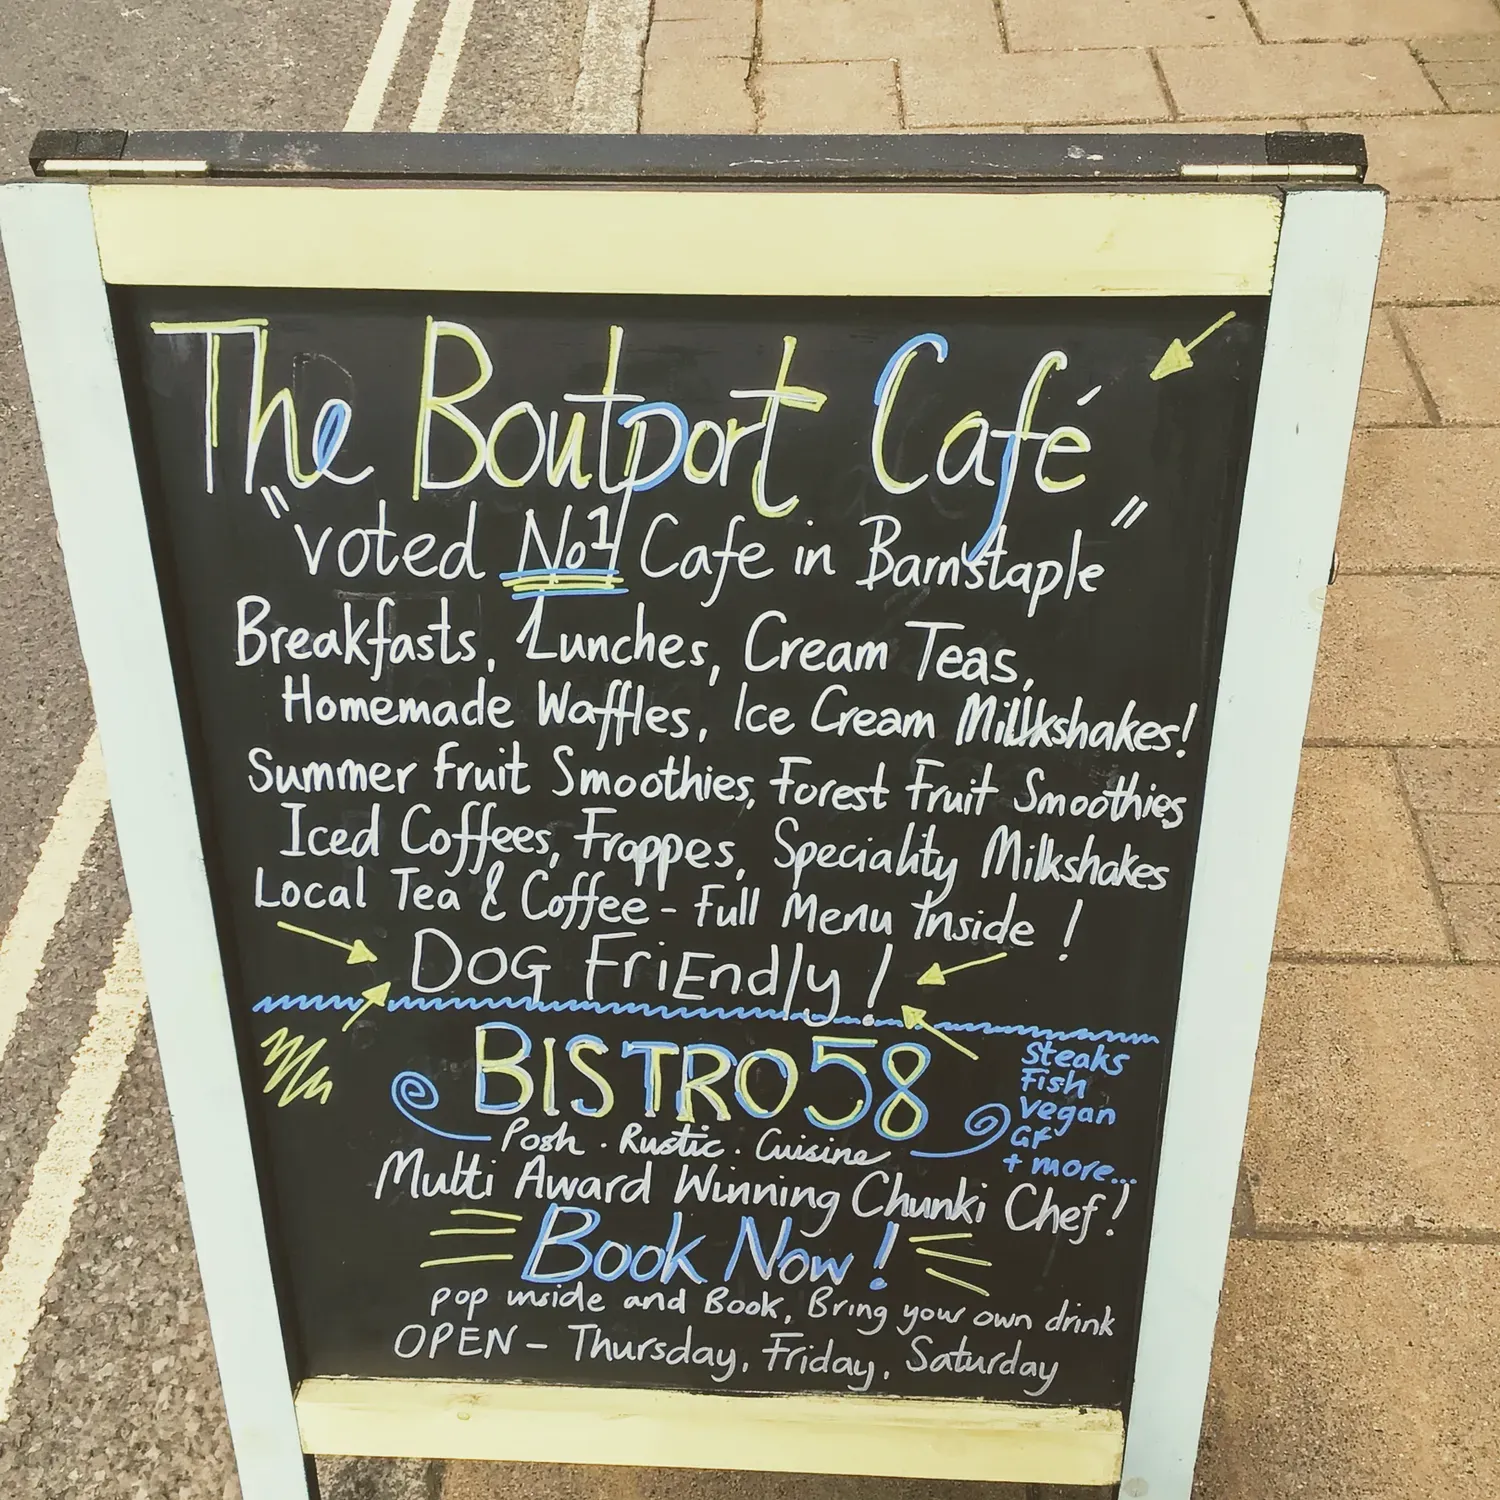 The Boutport Café
"voted No1 Cafe in Barnstaple"
Breakfasts, Lunches, Cream Teas,
Homemade Waffles, Ice Cream Milkshakes!
Summer Fruit Smoothies, Forest Fruit Smoothies
Iced Coffees, Frappes, Speciality Milkshakes
Local Tea & Coffee - Full Menu Inside!
DOG FriEndly!
BISTRO58
Posh . Rustic . Cuisine
Steaks
Fish
Vegan
GF
+ more...
Multi Award Winning Chunki Chef!
Book Now!
pop inside and Book, Bring your own drink
OPEN - Thursday, Friday, Saturday